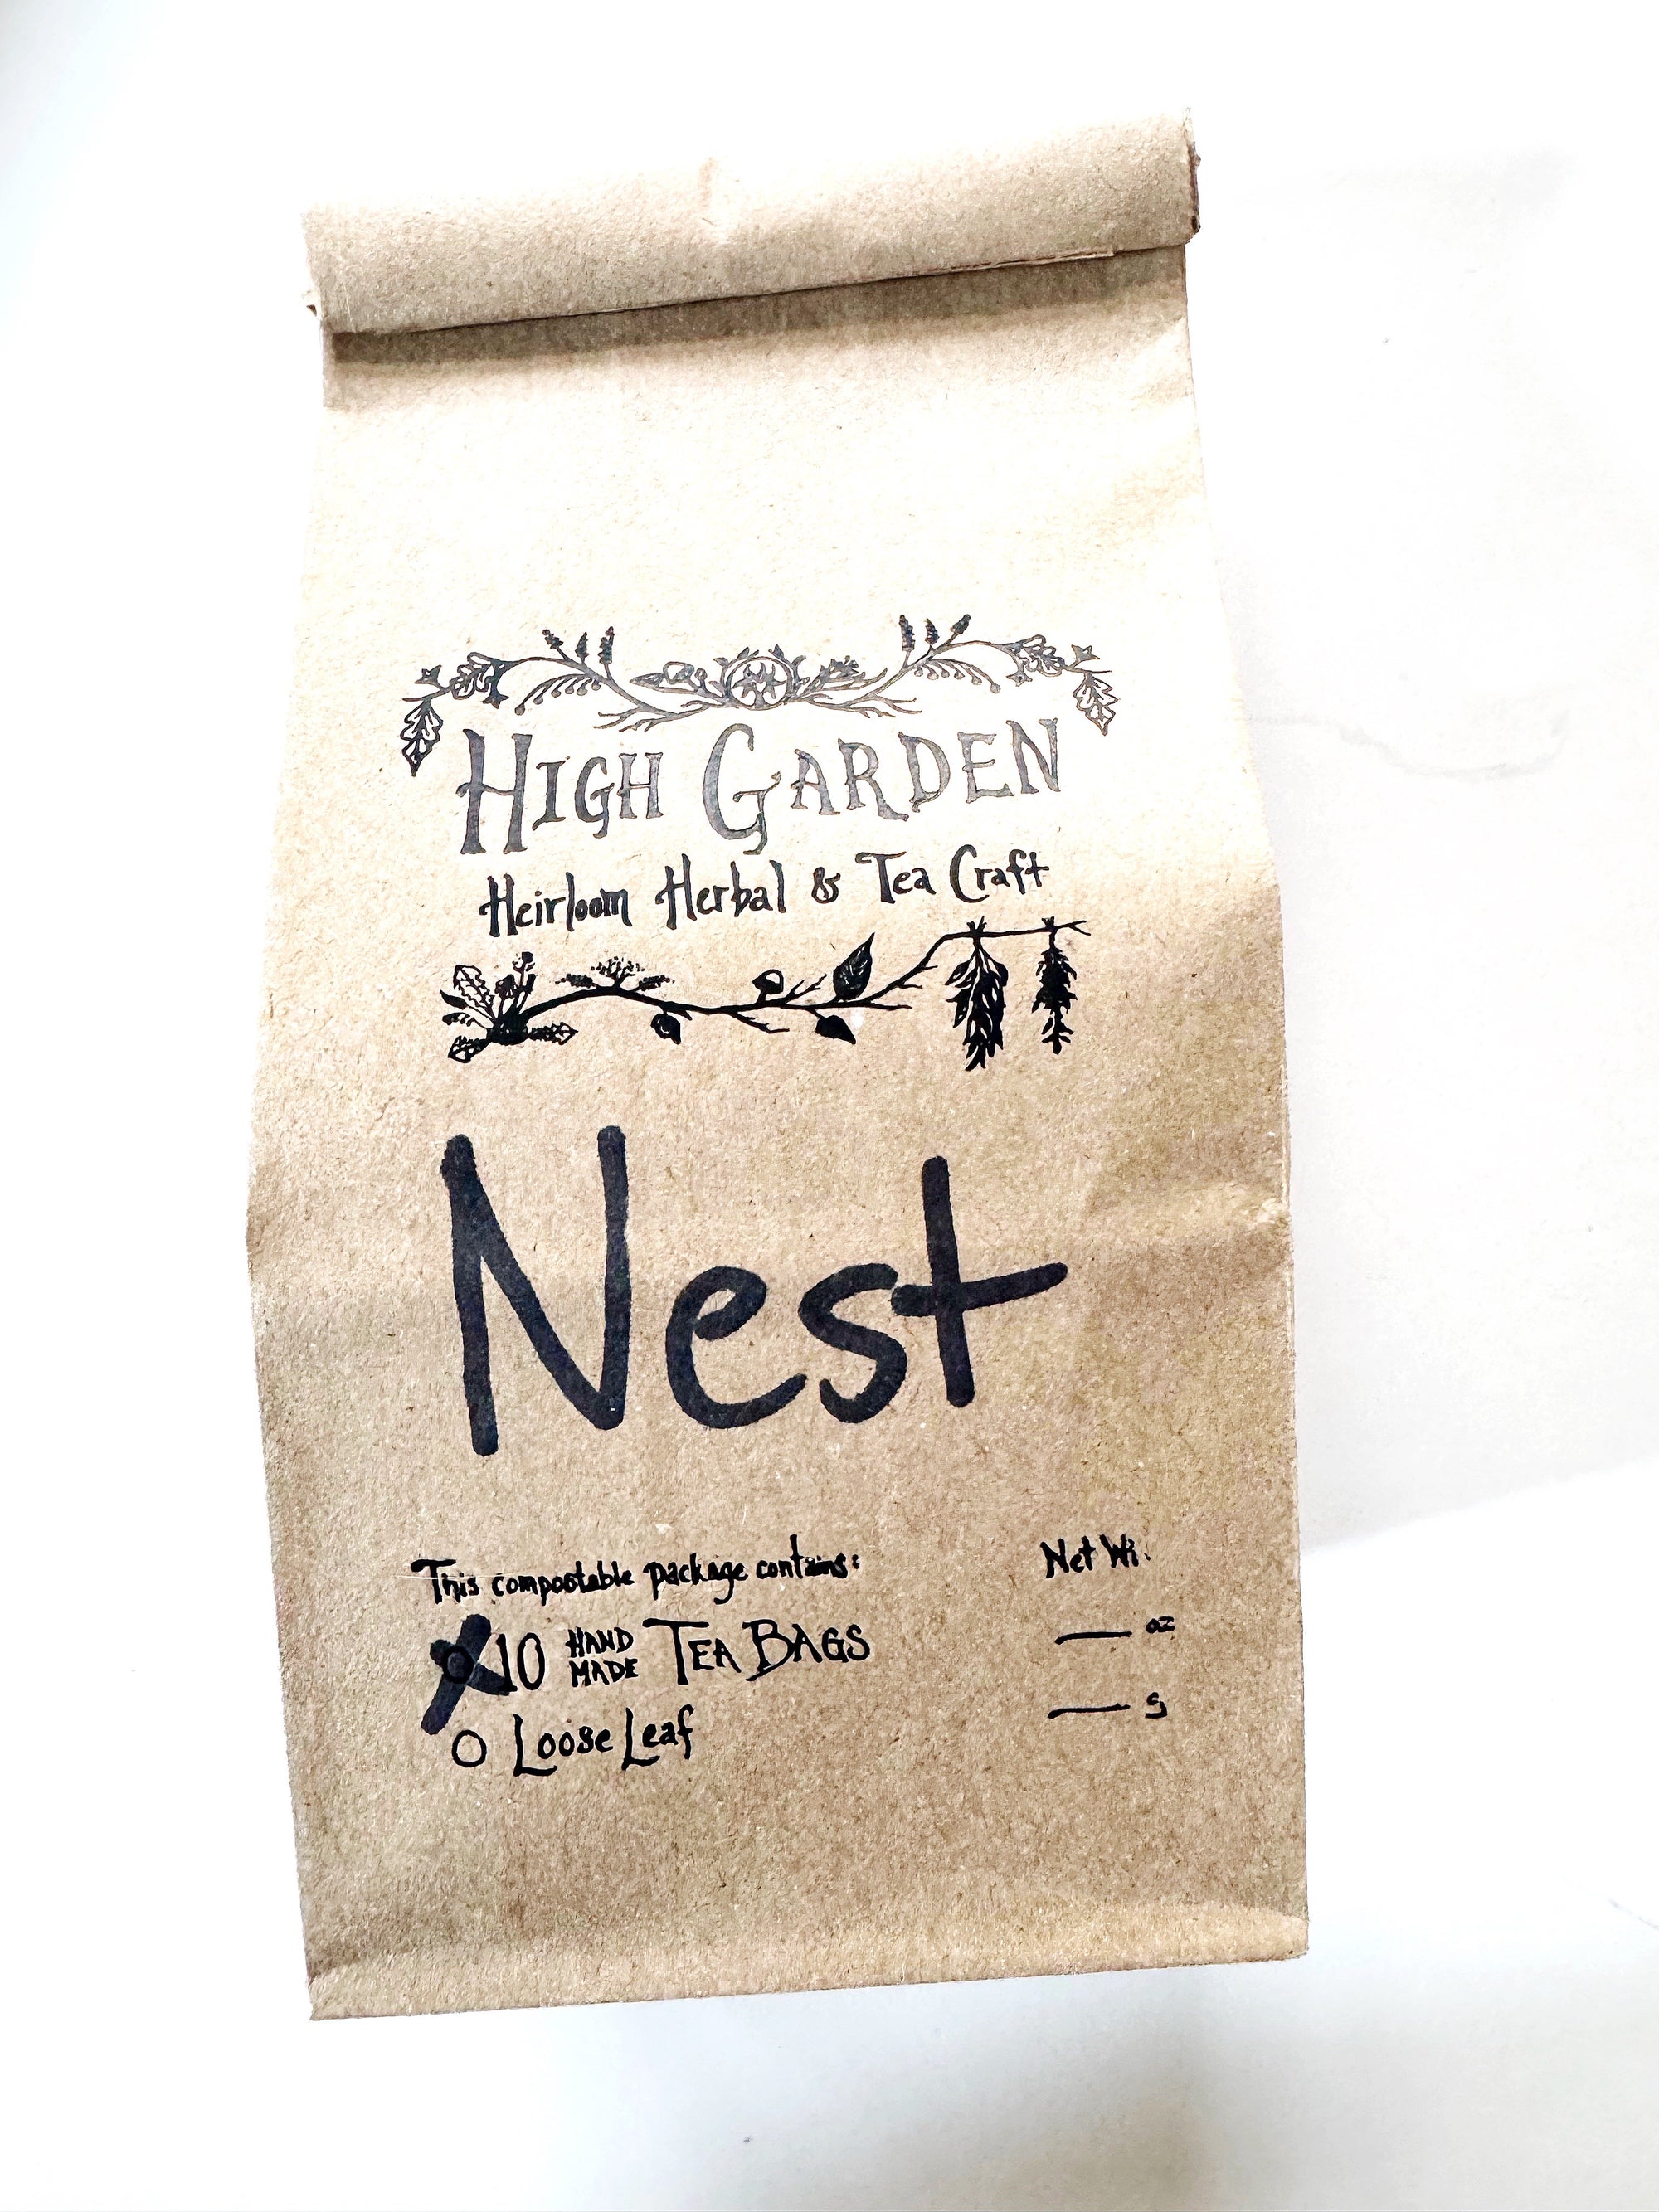 HIGH GARDEN
Heirloom Herbal & Tea Craft
Nest
This compostable package contains:
10 HAND MADE TEA BAGS
Loose Leaf
Net Wt.
oz
g